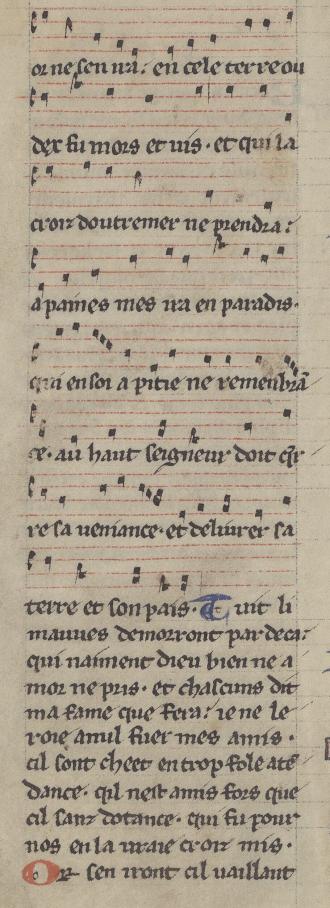 or ne sen ira. en cele terre ou
dex fu mors et uis. et qui la
croiz doutremer ne prendra.
a paines mes ira en paradis.
qui en soi a pitie ne remenbrā
ce. au haut seigneur doit q̄r
re sa ueniance. et deliurer sa
terre et son pais. Tuit li
mauues demorront par deca.
qui naiment dieu bien ne a
mor ne pris. et chascuns dit
ma fame que fera. ie ne le
roie a nul fuer mes amis.
cil sont cheet en trop fole atē
dance. qil nest amis fors que
cil sanz dotance. qui fu pour
nos en la uraie croiz mis.
Or sen iront cil uaillant